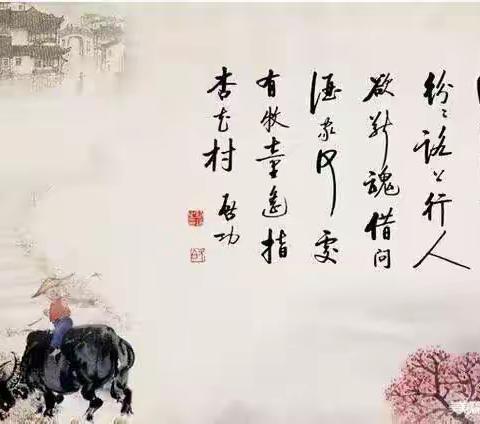 纷〻路上行人
欲断魂借问
酒家何处
有牧童遥指
杏花村 启功